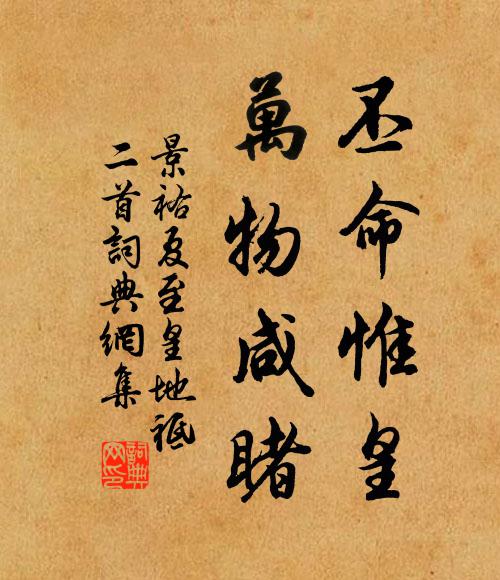 丕命惟皇
萬物咸睹
景祐夏至皇地祗
二首詞典網集
詞典
网印